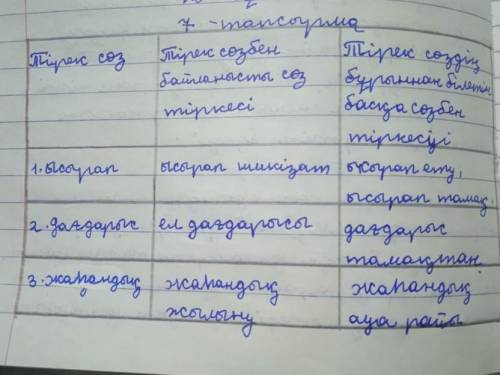 7 - тапсырма
Тірек сөз
Тірек сөзбен
байланысты сөз
тіркесі
Тірек сөздің
бұрыннан білетін
басқа сөзбен
тіркесуі
1. ысырап
ысырап шикізат
ысырап ету,
ысырап тамақ
2. дағдарыс
ел дағдарысы
дағдарыс
тамақтан
3. жаһандық
жаһандық
жылыну
жаһандық
ауа райы